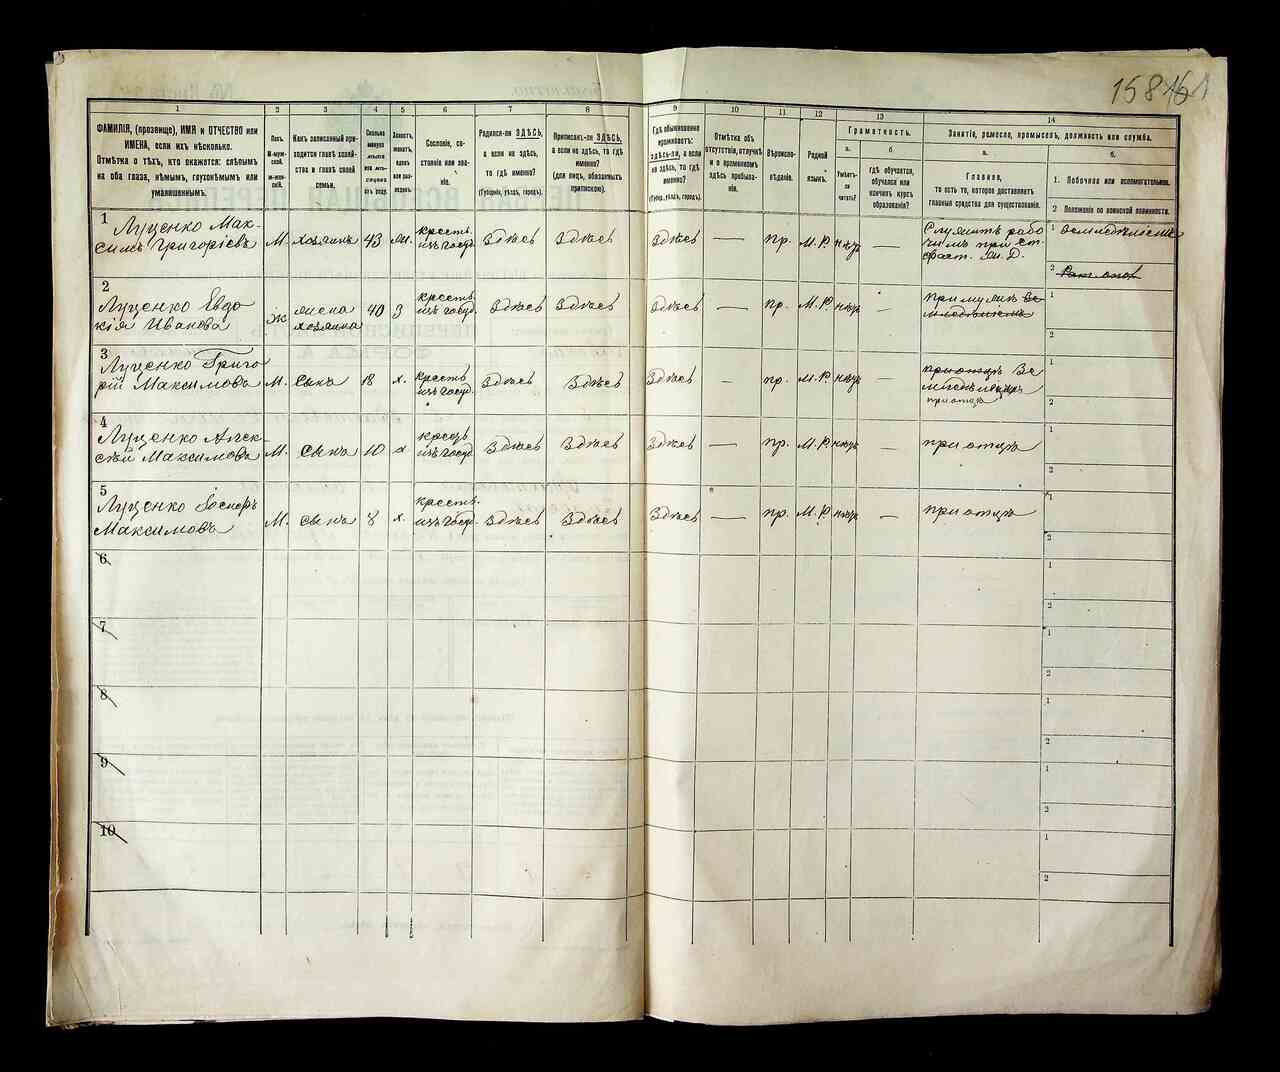 158
1
2
3
4
5
6
7
8
9
10
11
12
13
14
ФАМИЛІЯ, (прозвище), ИМЯ и ОТЧЕСТВО или
ИМЕНА, если ихъ нѣсколько.
Отмѣтка о тѣхъ, кто окажется: слѣпымъ
на оба глаза, нѣмымъ, глухонѣмымъ или
умалишеннымъ.
Полъ.
М-муж-
ской.
Ж-жен-
скій.
Какъ записанный при-
ходится главѣ хозяй-
ства и главѣ своей
семьи.
Сколько
минуло
лѣтъ
или мѣ-
сяцевъ
отъ роду.
Холостъ,
женатъ,
вдовъ
или раз-
веденъ.
Сословіе, со-
стояніе или зва-
ніе.
Родился-ли ЗДѢСЬ,
а если не здѣсь,
то гдѣ именно?
(Губернія, уѣздъ, городъ).
Приписанъ-ли ЗДѢСЬ,
а если не здѣсь, то гдѣ
именно?
(для лицъ, обязанныхъ
припискою).
Гдѣ обыкновенно
проживаетъ:
здѣсь-ли, а если
не здѣсь, то гдѣ
именно?
(Губер., уѣздъ, городъ).
Отмѣтка объ
отсутствіи, отлучкѣ
и о временномъ
здѣсь пребыва-
ніи.
Вѣроиспо-
вѣданіе.
Родной
языкъ.
Грамотность.
а.
Умѣетъ-
ли
читать?
б.
гдѣ обучается,
обучался или
кончилъ курсъ
образованія?
Занятіе, ремесло, промыселъ, должность или служба.
а.
Главное,
то есть то, которое доставляетъ
главныя средства для существованія.
б.
1. Побочное или вспомогательное.
2 Положеніе по воинской повинности.
1 Луценко Мак-
симъ Григоріевъ М. хозяинъ 43 жн. крестьян. изъ госуд. Здѣсь Здѣсь Здѣсь — пр. М.Р. нѣтъ — Служитъ рабо
чимъ при ст. М. Д. 1 земледѣліемъ
2
2
Луценко Евдо
кія Иванова ж жена хозяина 40 З крестьян. изъ госуд. Здѣсь Здѣсь Здѣсь — пр. М.Р. нѣтъ — при мужѣ
1
2
3
Луценко Григо
рій Максимовъ М. Сынъ 18 х. крестьян. изъ госуд. Здѣсь Здѣсь Здѣсь — пр. М.Р. нѣтъ — при отцѣ
1
2
4
Луценко Алек-
сѣй Максимовъ М. Сынъ 10 х крестьян. изъ госуд. Здѣсь Здѣсь Здѣсь — пр. М.Р. нѣтъ — при отцѣ
1
2
5
Луценко
Максимовъ М. Сынъ 8 х. крестьян. изъ госуд. Здѣсь Здѣсь Здѣсь — пр. М.Р. нѣтъ — при отцѣ
1
2
6
1
2
7
1
2
8
1
2
9
1
2
10
1
2